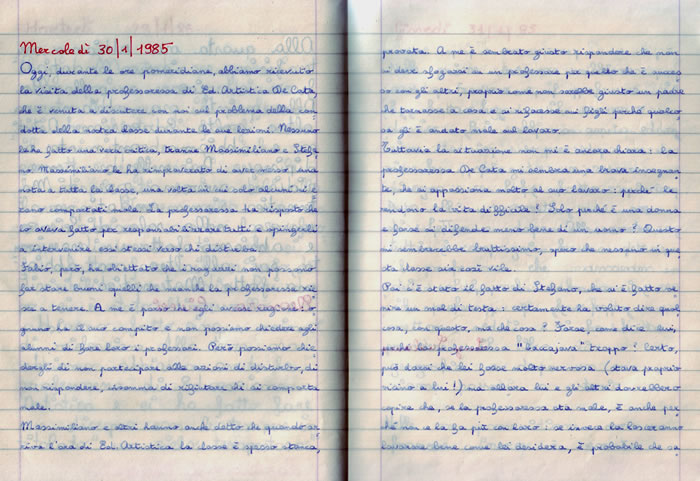 Mercoledì 30/1/1985
Oggi, durante le ore pomeridiane, abbiamo ricevuto
la visita della professoressa di Ed. Artistica De Cata,
che è venuta a discutere con noi sui problemi della
dotta della nostra classe durante le sue lezioni. Nessuno
le ha fatto una vera critica, tranne Massimiliano e Stefa
no. Massimiliano le ha rimproverato di aver messo una
nota a tutta la classe, una volta in cui solo alcuni si e
rano comportati male. La professoressa ha risposto che
lo aveva fatto per responsabilizzare tutti e spingerli
a intervenire essi stessi verso chi disturba.
Fabio, però, ha obiettato che i ragazzi non possono
far stare buoni quelli che neanche la professoressa rie
sce a tenere. A me è parso che egli avesse ragione: o
gnuno ha il suo compito e non possiamo chiedere agli
alunni di fare loro i professori. Però possiamo chie
dergli di non partecipare alle azioni di disturbo, di
non rispondere, insomma di rifiutare chi si comporta
male.
Massimiliano e altri hanno anche detto che quando ar
riva l'ora di Ed. Artistica la classe è spesso stanca,
provata. A me è sembrato giusto rispondere che non
si deve sfogarsi su un professore per quello che è succes
so con gli altri, proprio come non sarebbe giusto un padre
che tornasse a casa e si rifacesse sui figli perché qualco
sa gli è andato male sul lavoro.
Tuttavia la situazione non mi è ancora chiara: la
professoressa De Cata mi sembra una brava insegnan
te, che si appassiona molto al suo lavoro: perché le
rendono la vita difficile? Solo perché è una donna
e forse si difende meno bene di un uomo? Questo
mi sembrerebbe bruttissimo, spero che nessuno in que
sta classe sia così vile.
Poi c'è stato il fatto di Stefano, che si è fatto ve
nire un mal di testa: certamente ha voluto dire qual
cosa, con questo, ma che cosa? Forse, come dice lui,
perché la professoressa "baccajava" troppo? Certo,
può darsi che lei fosse molto nervosa (stava proprio
vicino a lui!) ma allora lui e gli altri dovrebbero
capire che, se la professoressa sta male, è anche per
ché non ce la fa più con loro: se invece la lasciassero
lavorare bene come lei desidera, è probabile che sa